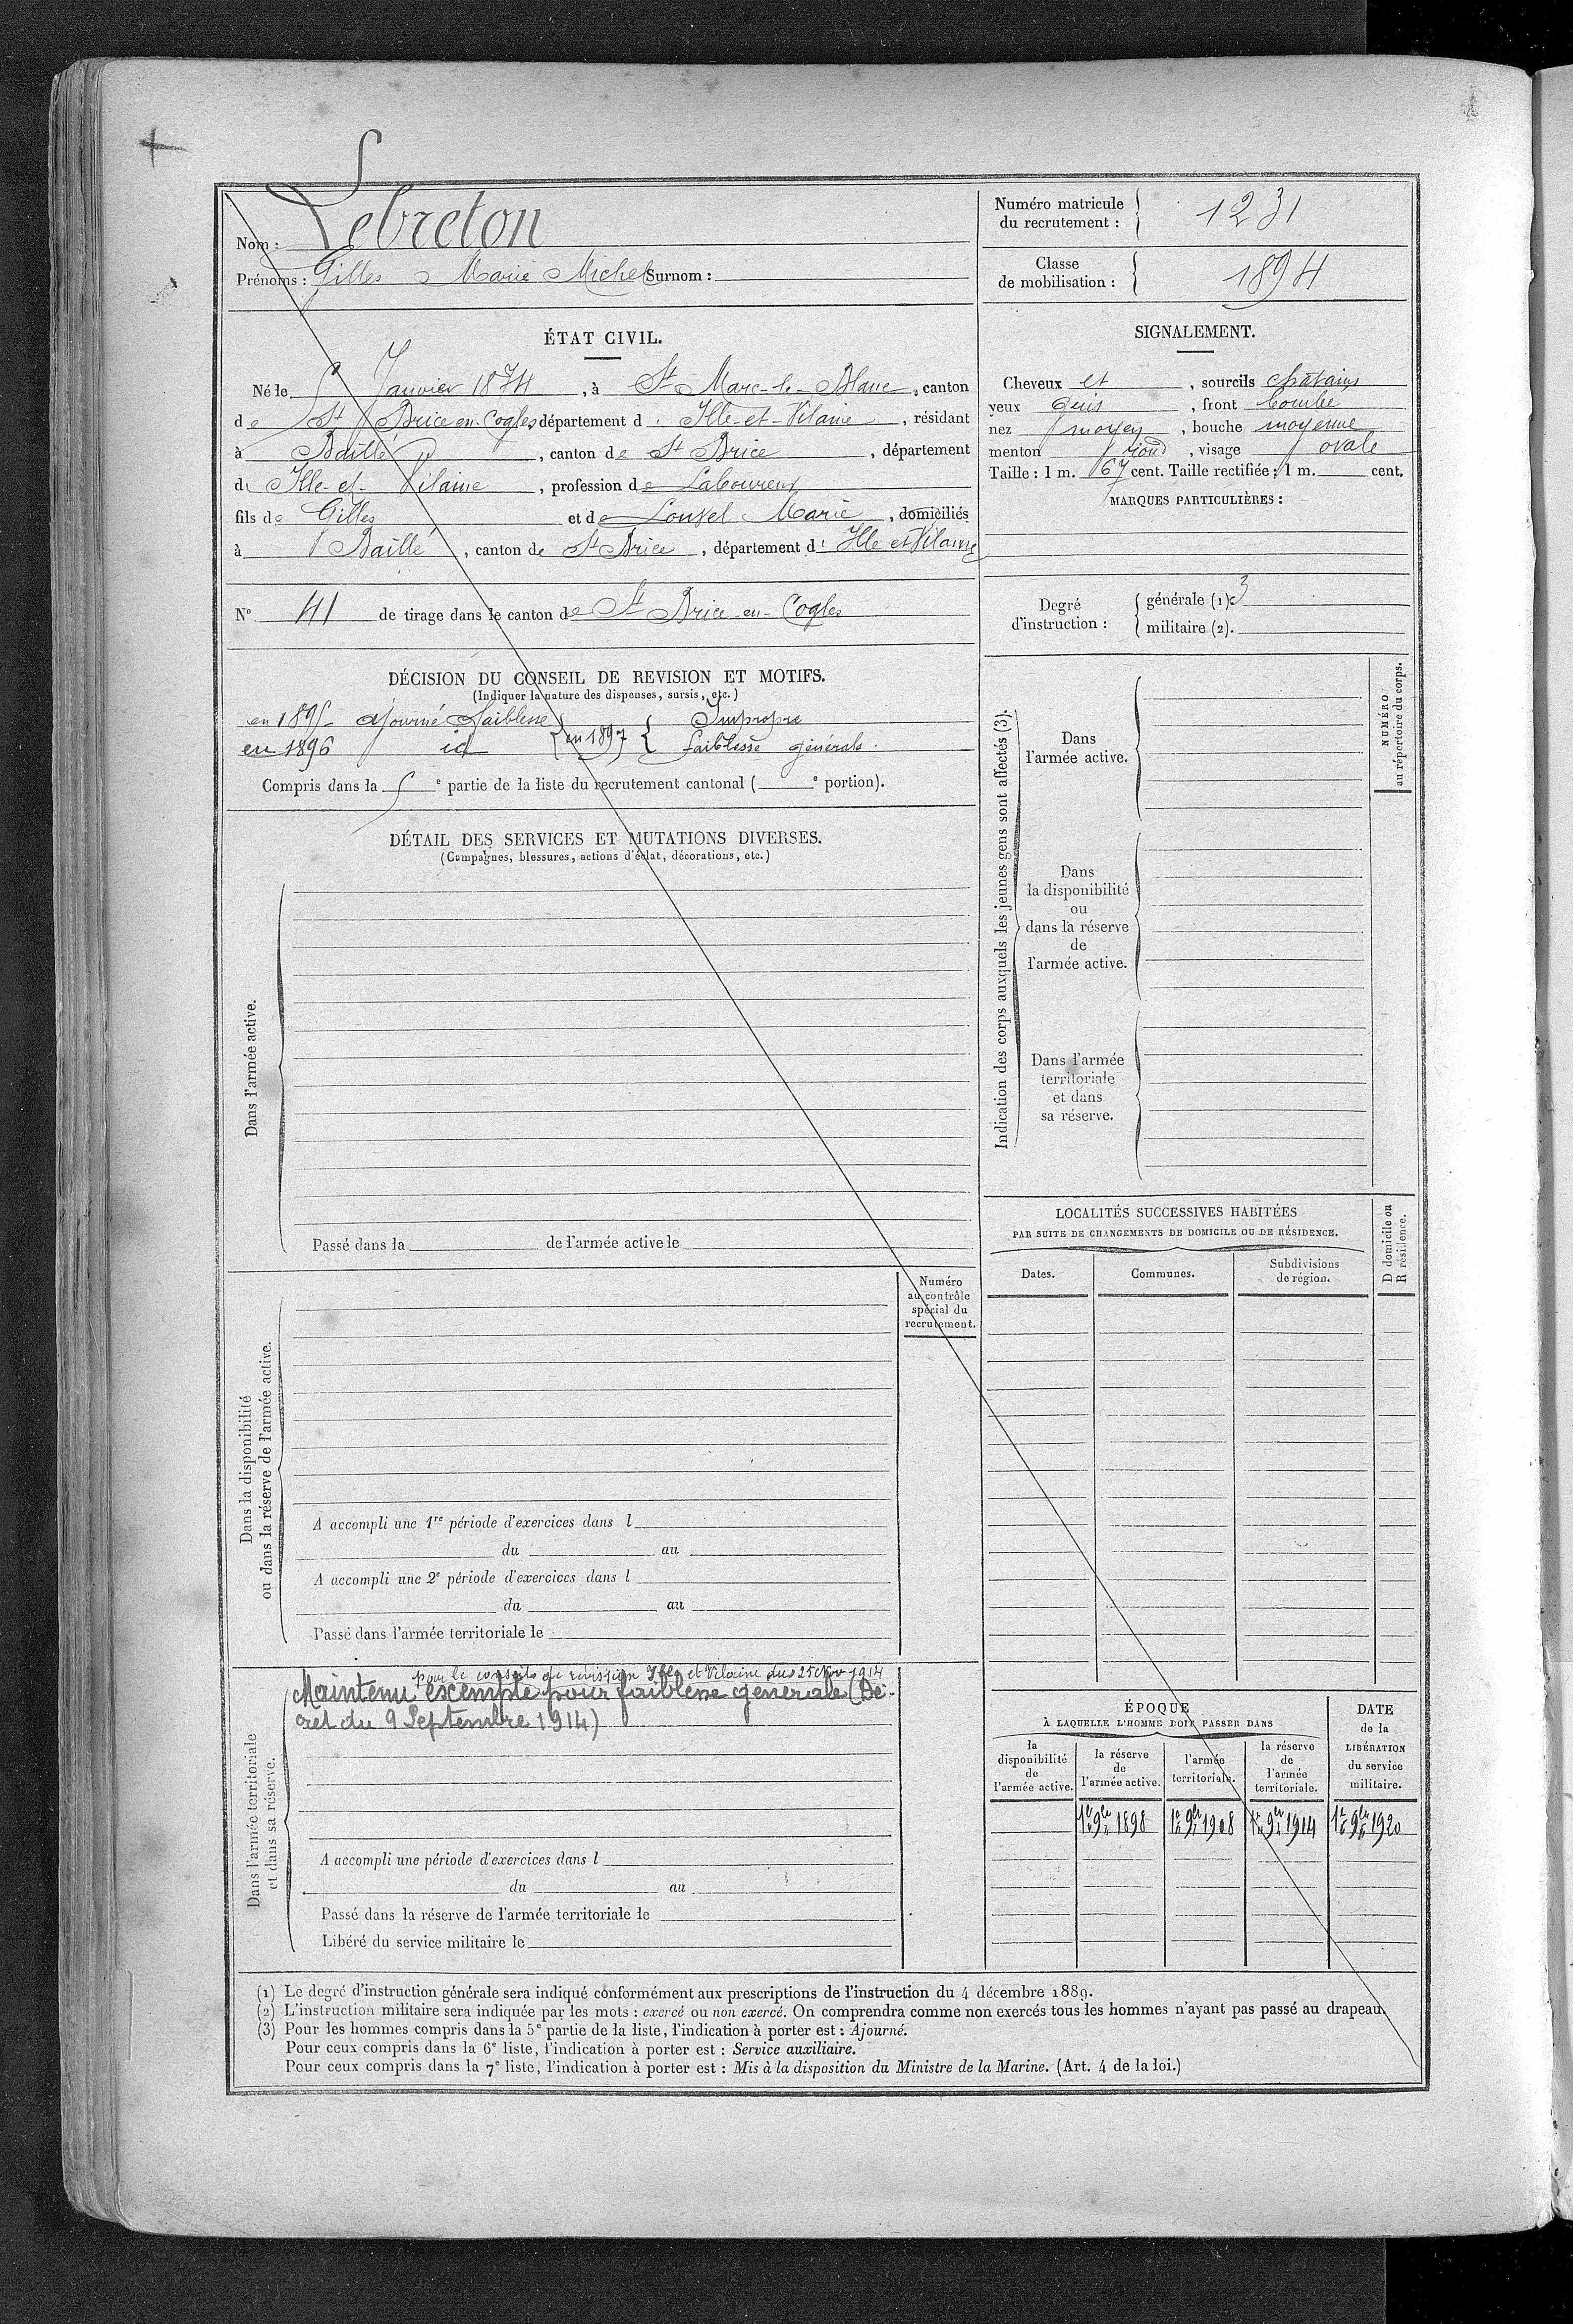 Nom : Lebreton
Prénoms : Gilles Marie Michel Surnom :
Numéro matricule
du recrutement : 1231
Classe
de mobilisation : 1894
ÉTAT CIVIL.
Né le 5 Janvier 1874, à St Marc-le-Blanc, canton
de St Brice en Cogles département d'Ille-et-Vilaine, résidant
à Baillé, canton de St Brice, département
d'Ille-et-Vilaine, profession de Laboureur
fils de Gilles et de Marie, domiciliés
à Baillé, canton de St Brice, département d'Ille et Vilaine
N° 41 de tirage dans le canton de St Brice-en-Cogles
SIGNALEMENT.
Cheveux et, sourcils châtains
yeux Gris, front bombé
nez moyen, bouche moyenne
menton rond, visage ovale
Taille : 1 m. 67 cent. Taille rectifiée : 1 m. cent.
MARQUES PARTICULIÈRES :
Degré
d'instruction :
générale (1). 3
militaire (2).
DÉCISION DU CONSEIL DE REVISION ET MOTIFS.
(Indiquer la nature des dispenses, sursis, etc.)
en 1895 ajourné faiblesse
en 1896 id
en 1897
Impropre
faiblesse générale.
Compris dans la 5e partie de la liste du recrutement cantonal ( e portion).
DÉTAIL DES SERVICES ET MUTATIONS DIVERSES.
(Campagnes, blessures, actions d'éclat, décorations, etc.)
Dans l'armée active.
Passé dans la de l'armée active le
Indication des corps auxquels les jeunes gens sont affectés (3).
Dans
l'armée active.
Dans
la disponibilité
ou
dans la réserve
de
l'armée active.
Dans l'armée
territoriale
et dans
sa réserve.
NUMÉRO
au répertoire du corps.
LOCALITÉS SUCCESSIVES HABITÉES
PAR SUITE DE CHANGEMENTS DE DOMICILE OU DE RÉSIDENCE.
Dates.
Communes.
Subdivisions
de région.
D domicile ou
R résidence.
Dans la disponibilité
ou dans la réserve de l'armée active.
Numéro
au contrôle
spécial du
recrutement.
A accompli une 1re période d'exercices dans l
du au
A accompli une 2e période d'exercices dans l
du au
Passé dans l'armée territoriale le
Dans l'armée territoriale
et dans sa réserve.
pour le conseil de révision Ille et Vilaine du 25 Nov 1914
Maintenu exempté pour faiblesse générale (Dé-
cret du 9 Septembre 1914)
A accompli une période d'exercices dans l
du au
Passé dans la réserve de l'armée territoriale le
Libéré du service militaire le
ÉPOQUE
À LAQUELLE L'HOMME DOIT PASSER DANS
la
disponibilité
de
l'armée active.
la réserve
de
l'armée active.
l'armée
territoriale.
la réserve
de
l'armée
territoriale.
DATE
de la
LIBÉRATION
du service
militaire.
1er 9bre 1898
1er 9bre 1908
1er 9bre 1914
1er 9bre 1920
(1) Le degré d'instruction générale sera indiqué conformément aux prescriptions de l'instruction du 4 décembre 1889.
(2) L'instruction militaire sera indiquée par les mots : exercé ou non exercé. On comprendra comme non exercés tous les hommes n'ayant pas passé au drapeau.
(3) Pour les hommes compris dans la 5e partie de la liste, l'indication à porter est : Ajourné.
Pour ceux compris dans la 6e liste, l'indication à porter est : Service auxiliaire.
Pour ceux compris dans la 7e liste, l'indication à porter est : Mis à la disposition du Ministre de la Marine. (Art. 4 de la loi.)